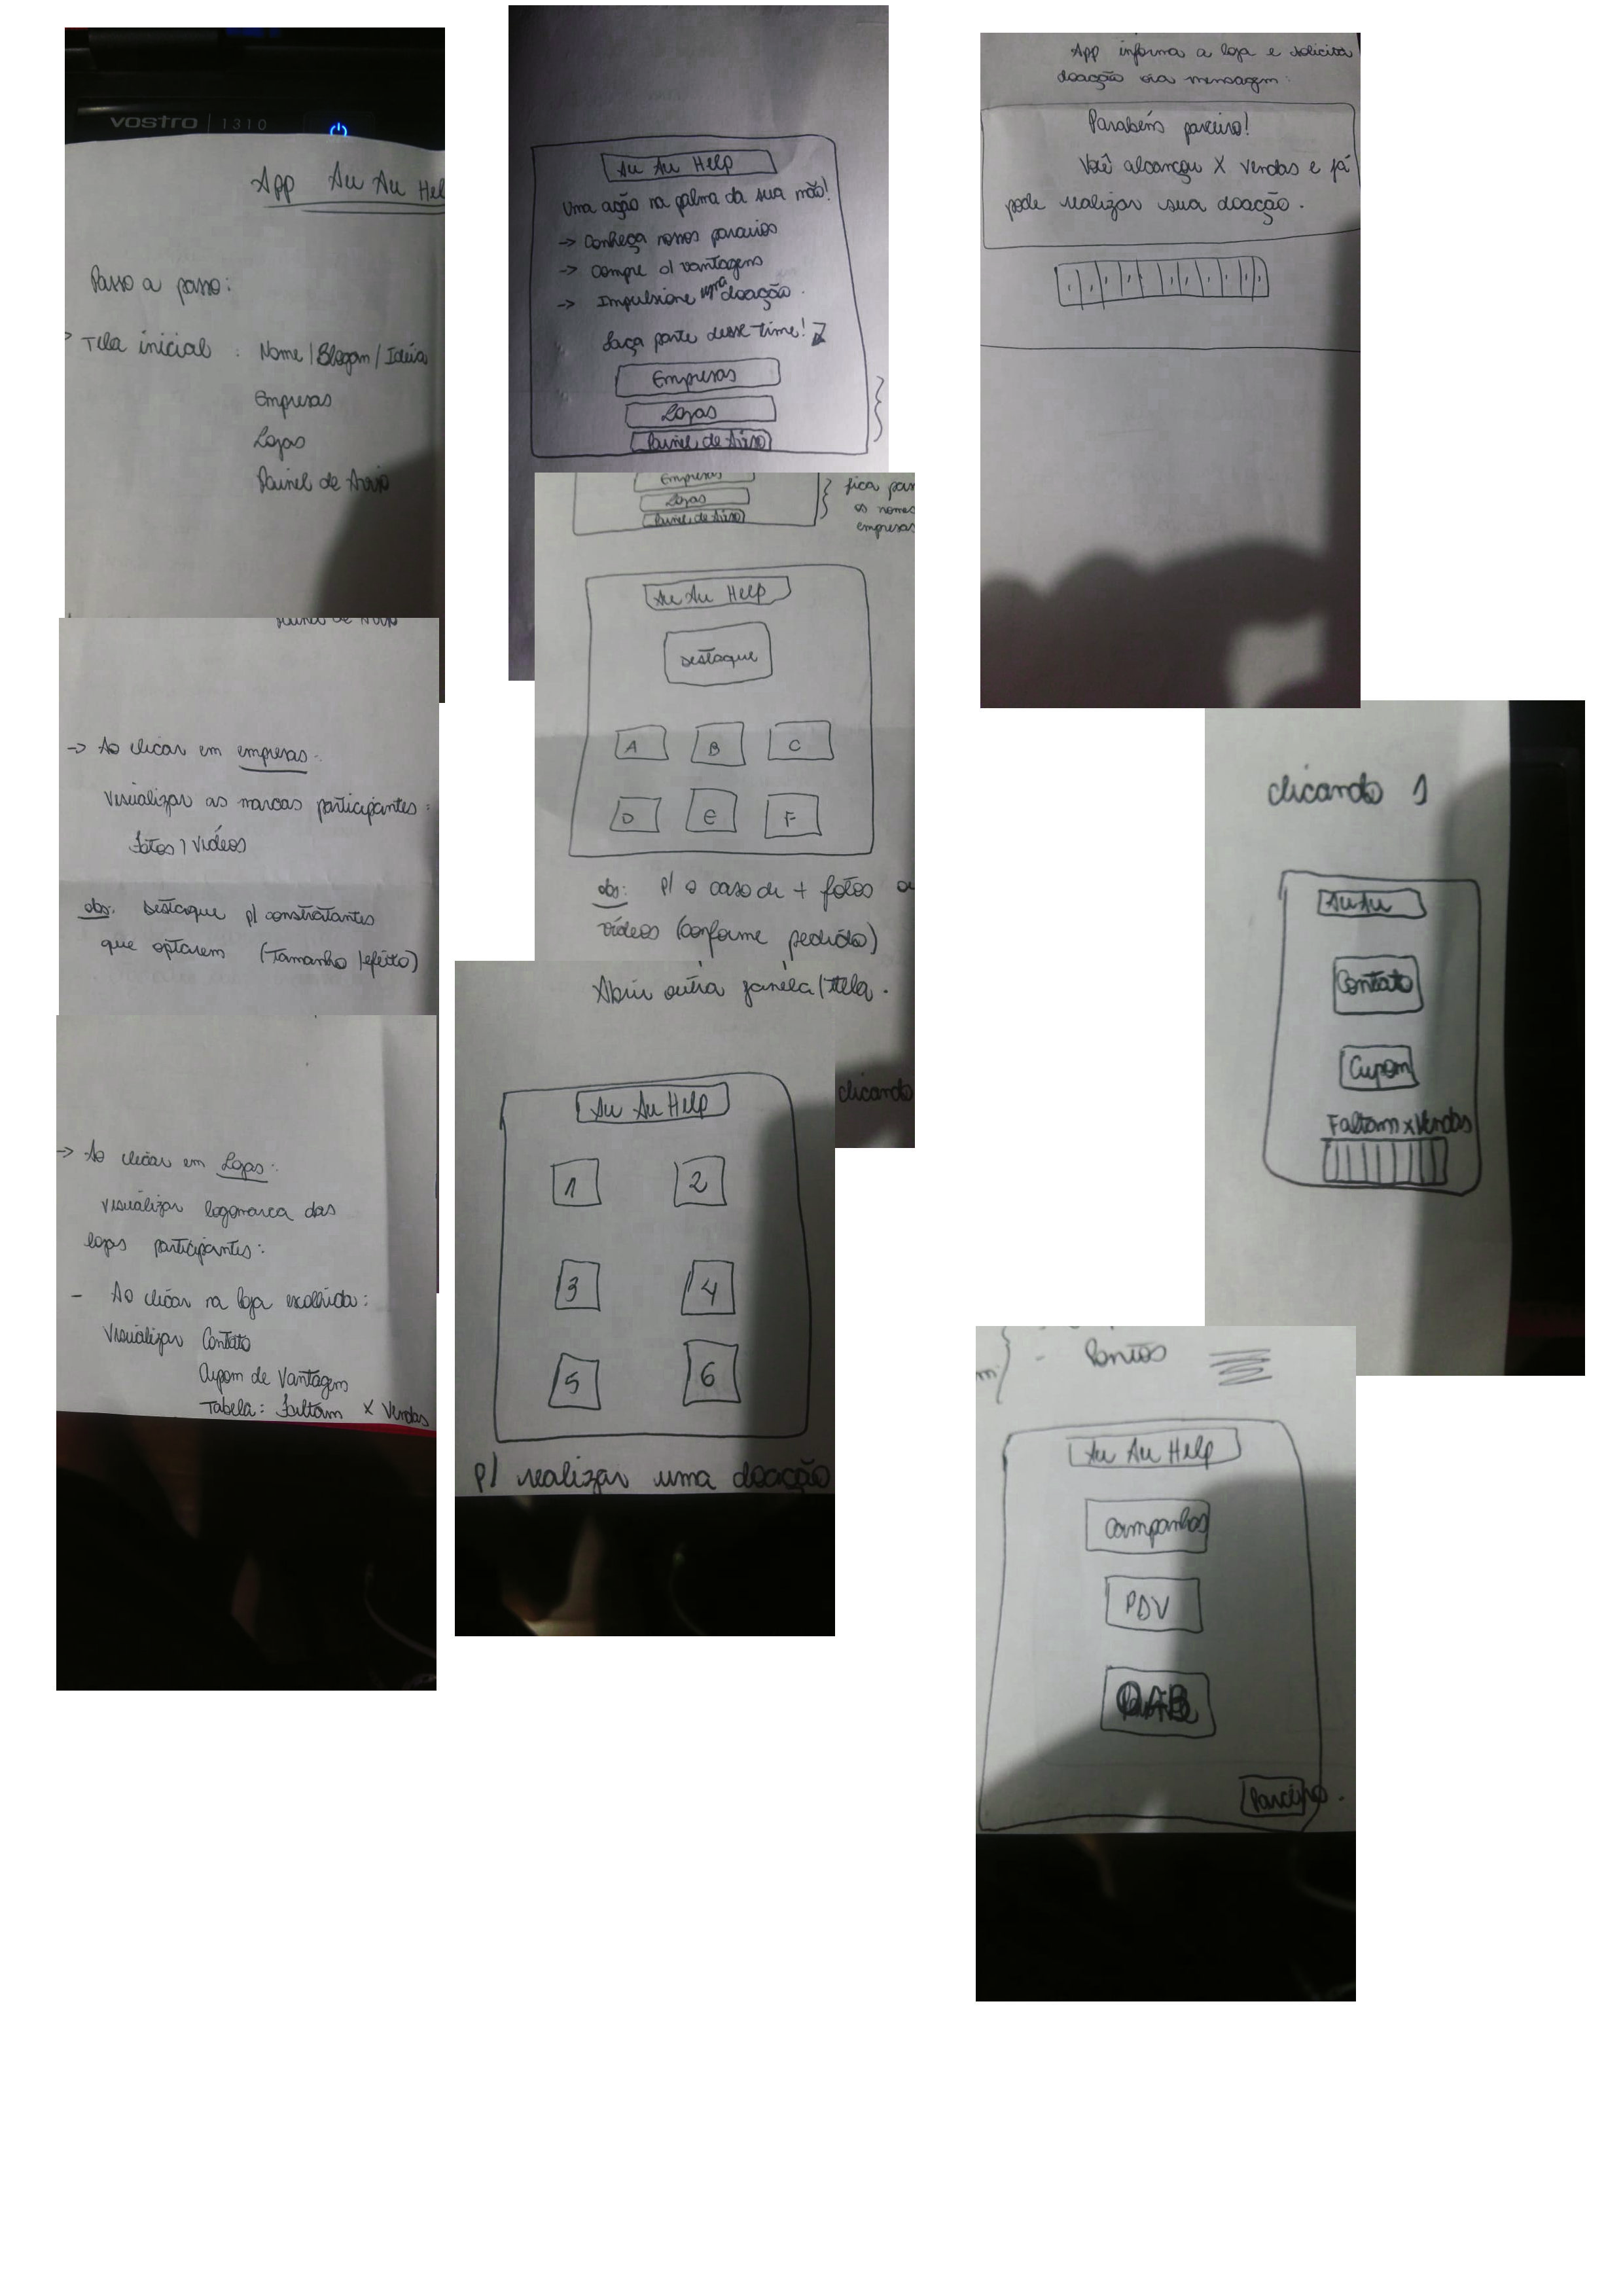 vostro | 1310
App Au Au Hel
Passo a passo:
> Tela inicial : Nome / Slogam / Idéia
Empresas
Lojas
Painel de Aviso
-> Ao clicar em empresas:
Visualizar as marcas participantes:
Fotos / Vídeos
obs: Destaque p/ constratantes
que optarem (Tamanho / efeito)
-> Ao clicar em Lojas:
visualizar logomarca das
lojas participantes:
- Ao clicar na loja escolhida:
Visualizar Contato
Cupom de Vantagem
Tabela: Faltam X Vendas
Au Au Help
Uma ação na palma da sua mão!
-> Conheça nossos parceiros
-> Compre c/ vantagens
-> Impulsione uma doação.
Faça parte desse time!
Empresas
Lojas
Painel de Aviso
Empresas
Lojas
Painel de Aviso
} fica par
os nomes
empresas
Au Au Help
Destaque
A B C
D E F
obs: p/ o caso de + fotos ou
vídeos (conforme pedido)
Abrir outra janela / tela.
clicando
Au Au Help
1 2
3 4
5 6
p/ realizar uma doação
App informa a loja e solicita
doação via mensagem:
Parabéns parceiro!
Você alcançou X vendas e já
pode realizar sua doação.
clicando 1
Au Au
Contato
Cupom
Faltam x Vendas
- Pontos
Au Au Help
Campanhas
PDV
Parceiro.